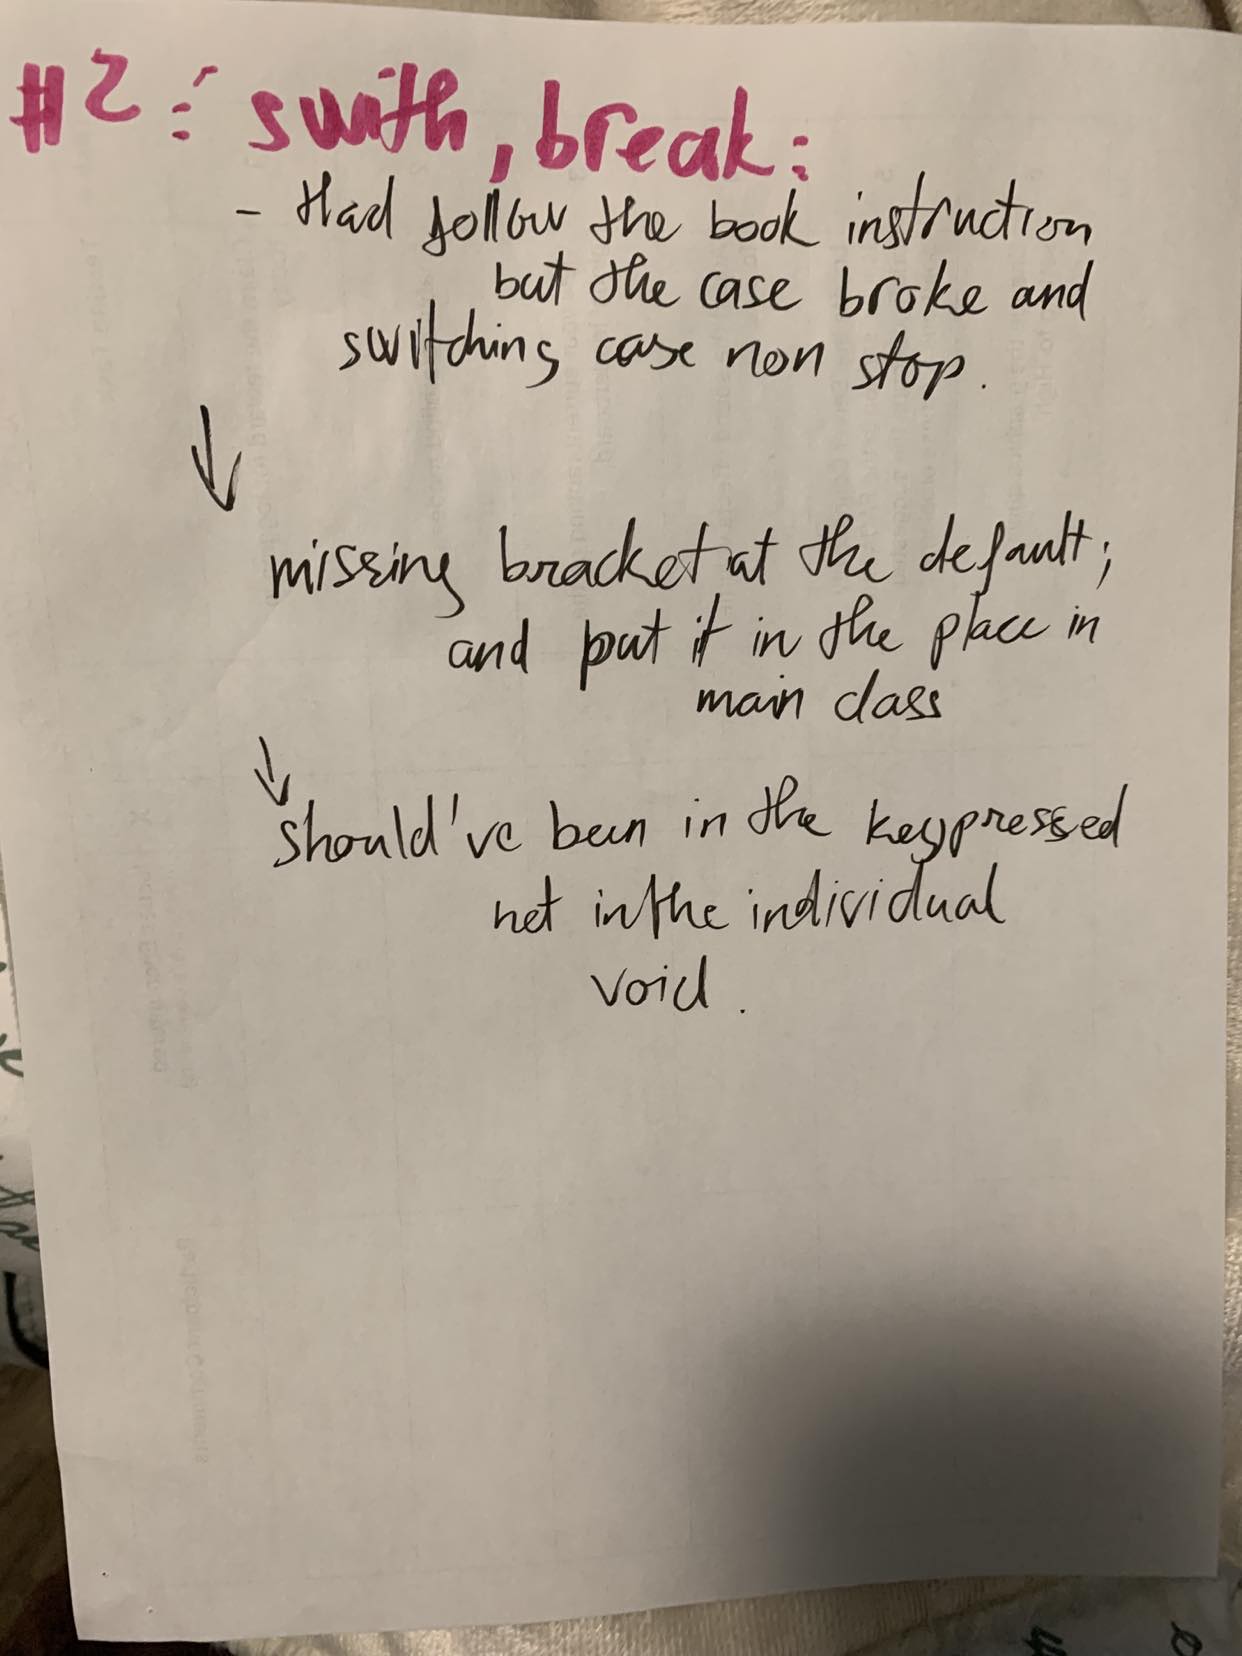 #2: swith, break:
- Had follow the book instruction
but the case broke and
switching case non stop.
↓
missing bracket at the default;
and put it in the place in
main class
↓
should've been in the keypressed
not in the individual
void.